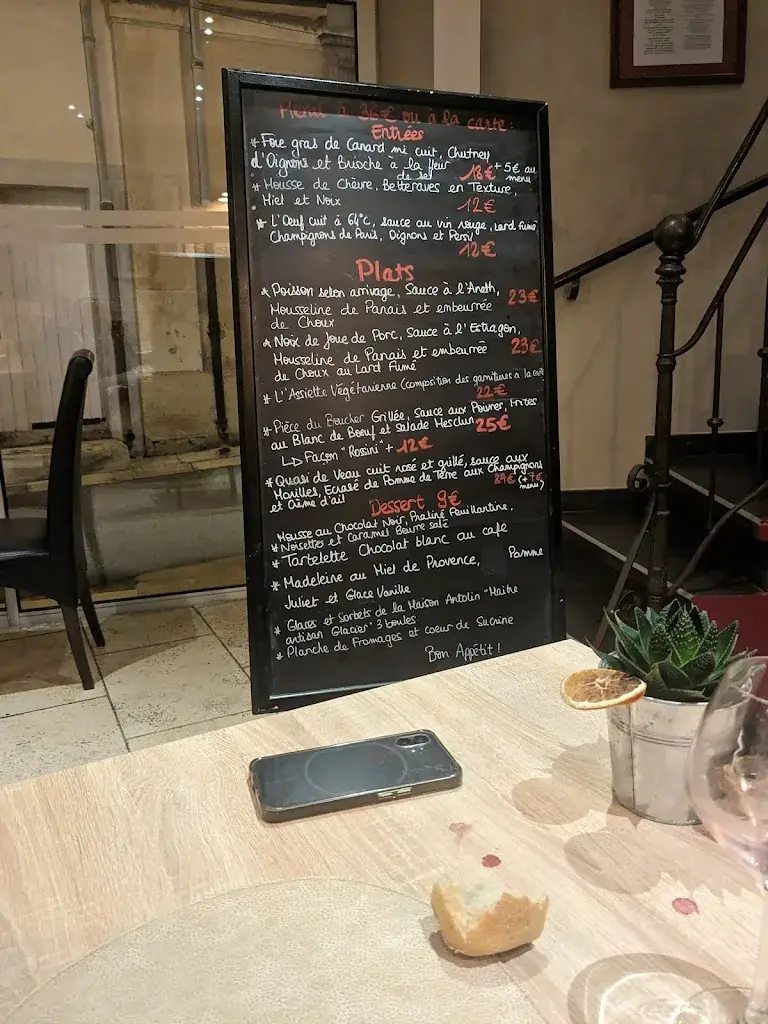 Menu à 36€ ou à la carte :
Entrées
* Foie gras de Canard mi cuit, Chutney
d'Oignons et Brioche à la fleur
de sel 18€ + 5€ au
menu
* Mousse de Chèvre, Betteraves en Texture,
Miel et Noix 12€
* L'Oeuf cuit à 64°C, sauce au vin rouge, Lard fumé
Champignons de Paris, Oignons et Persil
12€
Plats
* Poisson selon arrivage, Sauce à l'Aneth,
Mousseline de Panais et embeurrée 23€
de Choux
* Noix de Joue de Porc, Sauce à l'Estragon,
Mousseline de Panais et embeurrée 23€
de Choux au Lard Fumé
* L'Assiette Végétarienne (composition des garnitures à la carte
22€
* Pièce du Boucher Grillée, Sauce aux Poivres, Frites
au Blanc de Boeuf et Salade Mesclun 25€
↳ Façon "Rossini" + 12€
* Quasi de Veau cuit rosé et grillé, sauce aux
Morilles, Ecrasé de Pomme de Terre aux Champignons
et Crème d'ail 29€ (+ 7€
menu)
Dessert 9€
Mousse au Chocolat Noir, Praliné Feuillantine,
* Noisettes et Caramel Beurre salé
* Tartelette Chocolat blanc au café
* Madeleine au Miel de Provence, Pomme
Juliet et Glace Vanille
* Glaces et Sorbets de la Maison Antolin "Maitre
artisan Glacier" 3 boules
* Planche de Fromages et coeur de Sucrine
Bon Appétit !